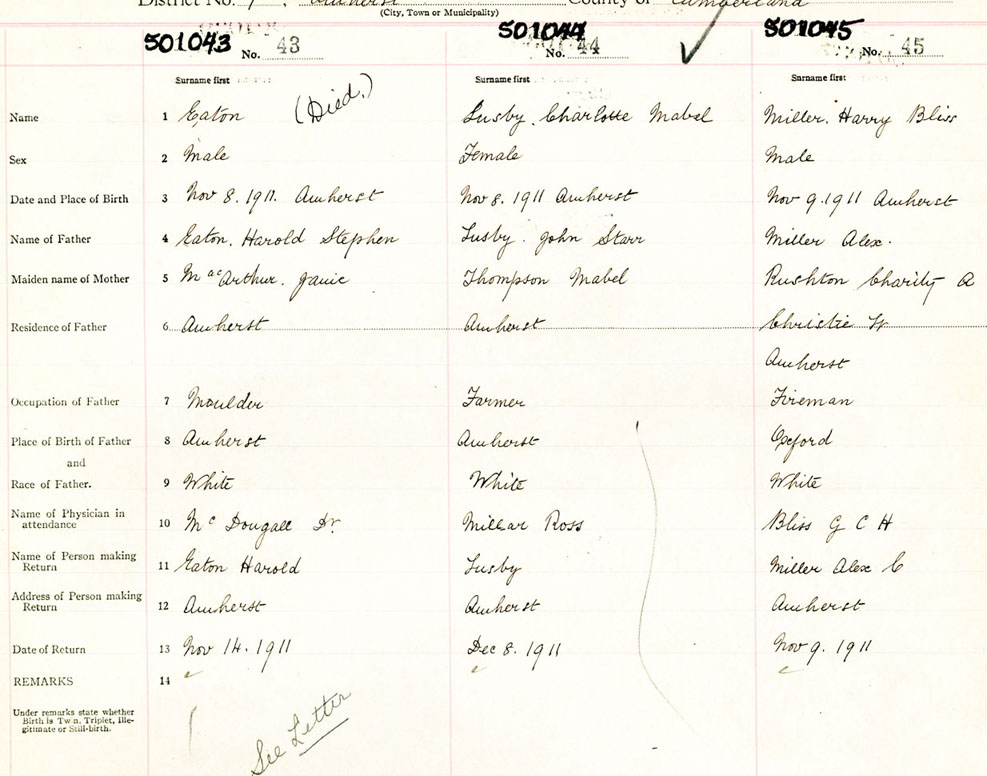 District No. 7, Amherst County of Cumberland
(City, Town or Municipality)
501043 No. 43 501044 No. 44 501045 No. 45
Surname first Surname first Surname first
Name 1 Eaton (Died.) Lusby. Charlotte Mabel Miller. Harry Bliss
Sex 2 Male Female Male
Date and Place of Birth 3 Nov 8. 1911. Amherst Nov 8. 1911 Amherst Nov 9. 1911 Amherst
Name of Father 4 Eaton. Harold Stephen Lusby. John Starr Miller Alex.
Maiden name of Mother 5 MacArthur. Janie Thompson Mabel Rushton Charity A
Residence of Father 6 Amherst Amherst Christie St
Amherst
Occupation of Father 7 Moulder Farmer Fireman
Place of Birth of Father 8 Amherst Amherst Oxford
and
Race of Father. 9 White White White
Name of Physician in attendance 10 Mc Dougall Dr. Millar Ross Bliss G C H
Name of Person making Return 11 Eaton Harold Lusby Miller Alex C
Address of Person making Return 12 Amherst Amherst Amherst
Date of Return 13 Nov 14. 1911 Dec 8. 1911 Nov 9. 1911
REMARKS 14
Under remarks state whether
Birth is Twin, Triplet, Ille-
gitimate or Still-birth.
See Letter